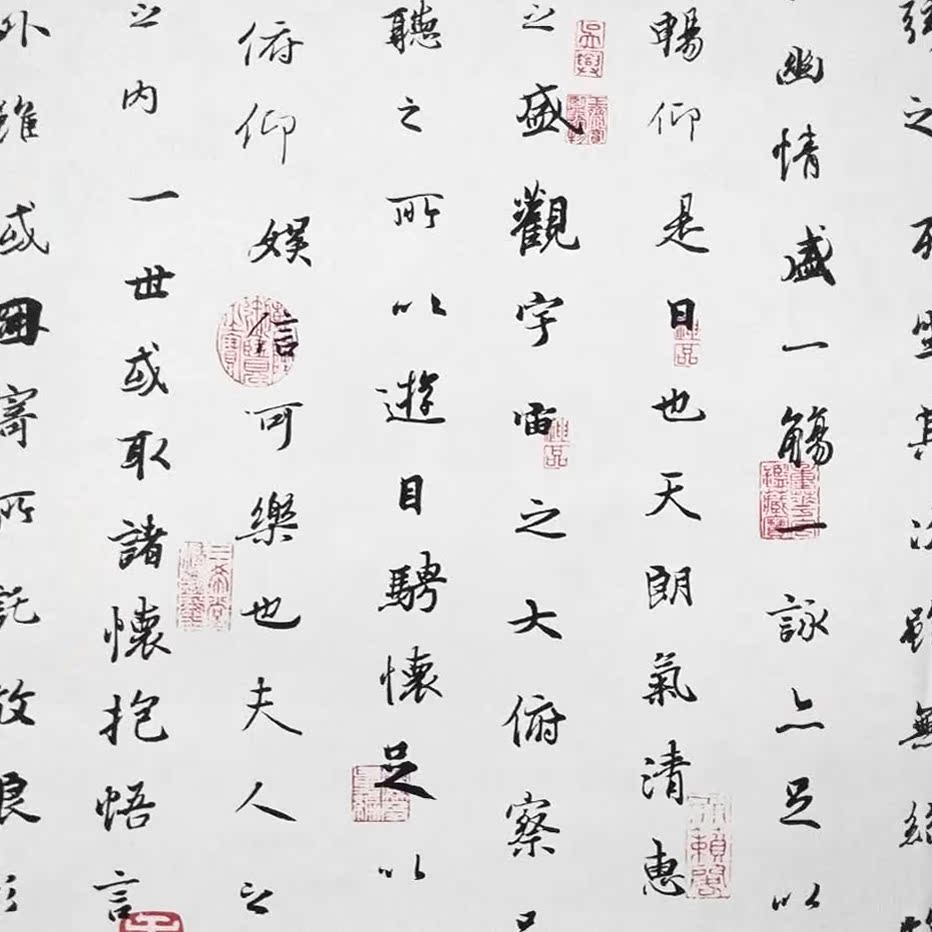 之列坐其次雖無絲
幽情盛一觴一詠亦足以
暢仰是日也天朗氣清惠
之盛觀宇宙之大俯察
聽之所以遊目騁懷足以
俯仰娛信可樂也夫人之
之内一世或取諸懷抱悟言
外雖或因寄所託放浪